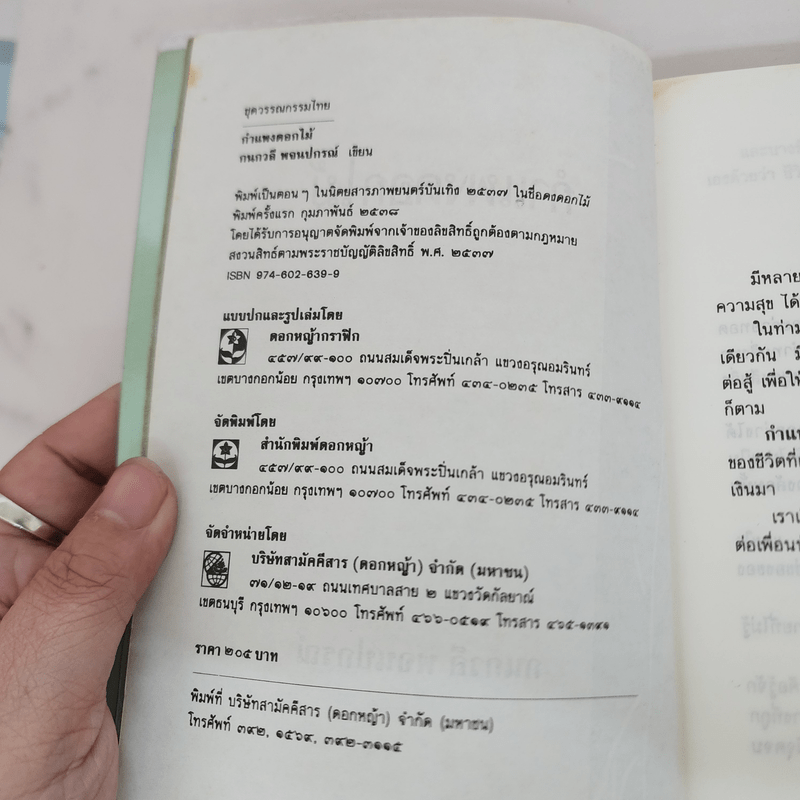 ชุดวรรณกรรมไทย
กำแพงดอกไม้
กนกวลี พจนปกรณ์ เขียน
พิมพ์เป็นตอน ๆ ในนิตยสารภาพยนตร์บันเทิง ๒๕๓๗ ในชื่อดงดอกไม้
พิมพ์ครั้งแรก กุมภาพันธ์ ๒๕๓๘
โดยได้รับการอนุญาตจัดพิมพ์จากเจ้าของลิขสิทธิ์ถูกต้องตามกฎหมาย
สงวนสิทธิ์ตามพระราชบัญญัติลิขสิทธิ์ พ.ศ. ๒๕๓๗
ISBN 974-602-639-9
แบบปกและรูปเล่มโดย
ดอกหญ้ากราฟิก
๔๕๗/๙๙-๑๐๐ ถนนสมเด็จพระปิ่นเกล้า แขวงอรุณอมรินทร์
เขตบางกอกน้อย กรุงเทพฯ ๑๐๗๐๐ โทรศัพท์ ๔๓๔-๐๒๓๕ โทรสาร ๔๓๓-๙๑๑๔
จัดพิมพ์โดย
สำนักพิมพ์ดอกหญ้า
๔๕๗/๙๙-๑๐๐ ถนนสมเด็จพระปิ่นเกล้า แขวงอรุณอมรินทร์
เขตบางกอกน้อย กรุงเทพฯ ๑๐๗๐๐ โทรศัพท์ ๔๓๔-๐๒๓๕ โทรสาร ๔๓๓-๙๑๑๔
จัดจำหน่ายโดย
บริษัทสามัคคีสาร (ดอกหญ้า) จำกัด (มหาชน)
๗๑/๑๒-๑๙ ถนนเทศบาลสาย ๒ แขวงวัดกัลยาณ์
เขตธนบุรี กรุงเทพฯ ๑๐๖๐๐ โทรศัพท์ ๔๖๖-๐๕๑๙ โทรสาร ๔๖๕-๑๓๙๑
ราคา ๒๐๕ บาท
พิมพ์ที่ บริษัทสามัคคีสาร (ดอกหญ้า) จำกัด (มหาชน)
โทรศัพท์ ๓๙๒, ๑๕๖๙, ๓๙๒-๓๑๑๕
มีหลาย
ความสุข ได้
ในท่าม
เดียวกัน
ต่อสู้ เพื่อให้
ก็ตาม
กำแพ
ของชีวิตที่
เงินมา
เราเ
ต่อเพื่อน